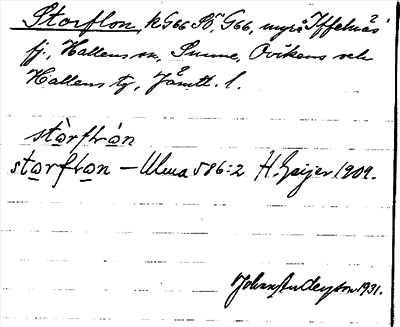 Storflon, kG66 SÖ, G66, myr å Iffelnäs
fj., Hallens sn, Sunne, Ovikens och
Hallens tg, Jämtl. l.
stòrflrón
storflron – Ulma 586:2 H. Geijer 1909.
Johan Anderson 1931.